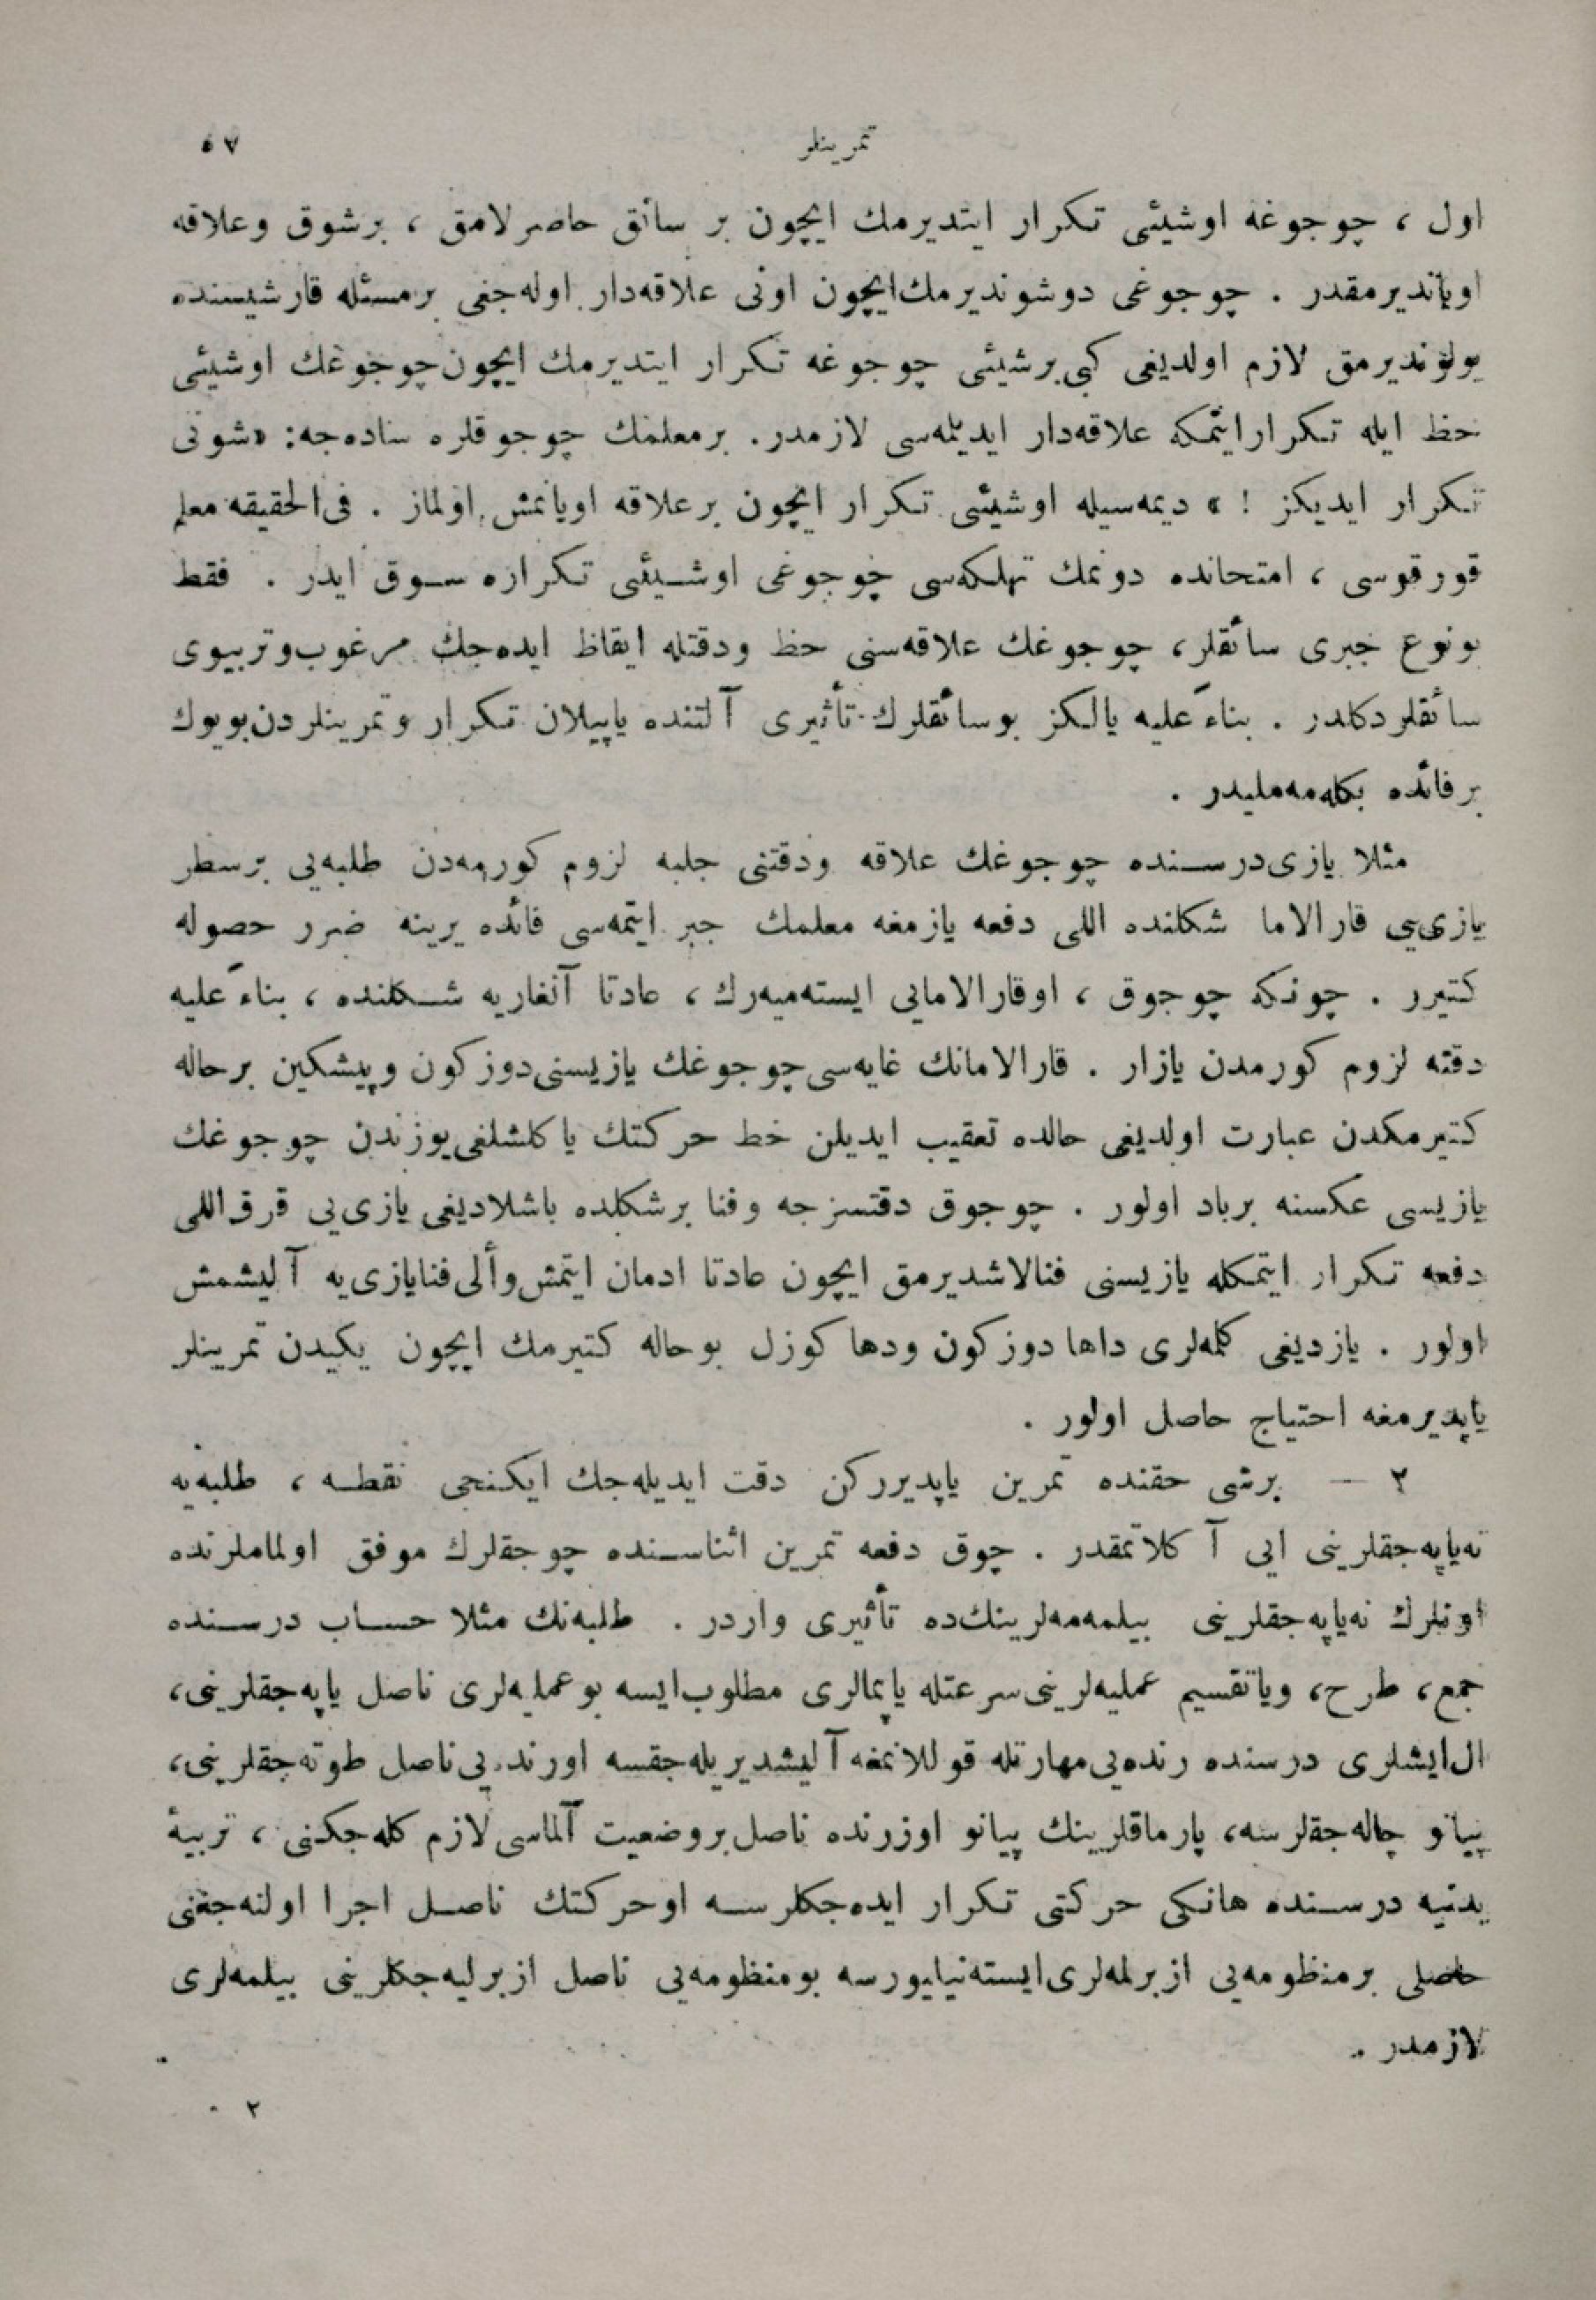 تمرینلر
٥٧
اول ، چوجوغه اوشیئی تكرار ایتدیرمك ایچون بر سائق حاضرلامق ، برشوق وعلاقه
اویاندیرمقدر . چوجوغی دوشوندیرمك ایچون اونی علاقه‌دار اوله‌جغی برمسئله قارشیسنده
بولوندیرمق لازم اولدیغی كبی برشیئی چوجوغه تكرار ایتدیرمك ایچون چوجوغك اوشیئی
حظ ایله تكرار ایتمكه علاقه‌دار ایدیلمه‌سی لازمدر. برمعلمك چوجوقلره ساده‌جه: «شونی
تكرار ایدیكز ! » دیمه‌سیله اوشیئی تكرار ایچون برعلاقه اویانمش اولماز . فی‌الحقیقه معلم
قورقوسی ، امتحانده دونمك تهلكه‌سی چوجوغی اوشیئی تكراره سوق ایدر . فقط
بونوع جبری سائقلر، چوجوغك علاقه‌سنی حظ ودقتله ایقاظ ایده‌جك مرغوب وتربیوی
سائقلر دكلدر . بناءً علیه یالكز بوسائقلرك تأثیری آلتنده یاپیلان تكرار وتمرینلردن بویوك
برفائده بكله‌مه‌ملیدر .
مثلا یازی درسنده چوجوغك علاقه ودقتنی جلبه لزوم كورمه‌دن طلبه‌یی برسطر
یازی‌یی قارالاما شكلنده اللی دفعه یازمغه معلمك جبر ایتمه‌سی فائده یرینه ضرر حصوله
كتیرر . چونكه چوجوق ، اوقارالامایی ایسته‌میه‌رك ، عادتا آنغاریه شكلنده ، بناءً علیه
دقته لزوم كورمدن یازار . قارالامانك غایه‌سی چوجوغك یازیسنی دوزكون وپیشكین برحاله
كتیرمكدن عبارت اولدیغی حالده تعقیب ایدیلن خط حركتك یاكلشلغی یوزندن چوجوغك
یازیسی عكسنه برباد اولور . چوجوق دقتسزجه وفنا برشكلده باشلادیغی یازی‌یی قرق اللی
دفعه تكرار ایتمكله یازیسنی فنالاشدیرمق ایچون عادتا ادمان ایتمش وألی فنایازی‌یه آلیشمش
اولور . یازدیغی كلمه‌لری داها دوزكون ودها كوزل بوحاله كتیرمك ایچون یكیدن تمرینلر
یاپدیرمغه احتیاج حاصل اولور .
٢ — برشی حقنده تمرین یاپدیرركن دقت ایدیله‌جك ایكنجی نقطه ، طلبه‌یه
نه‌یاپه‌جقلرینی ایی آكلاتمقدر . چوق دفعه تمرین اثناسنده چوجقلرك موفق اولمامالرنده
اونلرك نه‌یاپه‌جقلرینی بیلمه‌مه‌لرینك‌ده تأثیری واردر . طلبه‌نك مثلا حساب درسنده
جمع، طرح، ویاتقسیم عملیه‌لرینی سرعتله یاپمالری مطلوب ایسه بوعملیه‌لری ناصل یاپه‌جقلرینی،
ال‌ایشلری درسنده رنده‌یی مهارتله قوللانمغه آلیشدیریله‌جقسه اورنده‌یی ناصل طوته‌جقلرینی،
پیانو چاله‌جقلرسه، پارماقلرینك پیانو اوزرنده ناصل بروضعیت آلماسی لازم كله‌جكنی ، تربیهٔ
بدنیه درسنده هانكی حركتی تكرار ایده‌جكلرسه اوحركتك ناصل اجرا اولنه‌جغنی
حاصلی برمنظومه‌یی ازبرلمه‌لری ایسته‌نیلیورسه بومنظومه‌یی ناصل ازبرلیه‌جكلرینی بیلمه‌لری
لازمدر .
٢